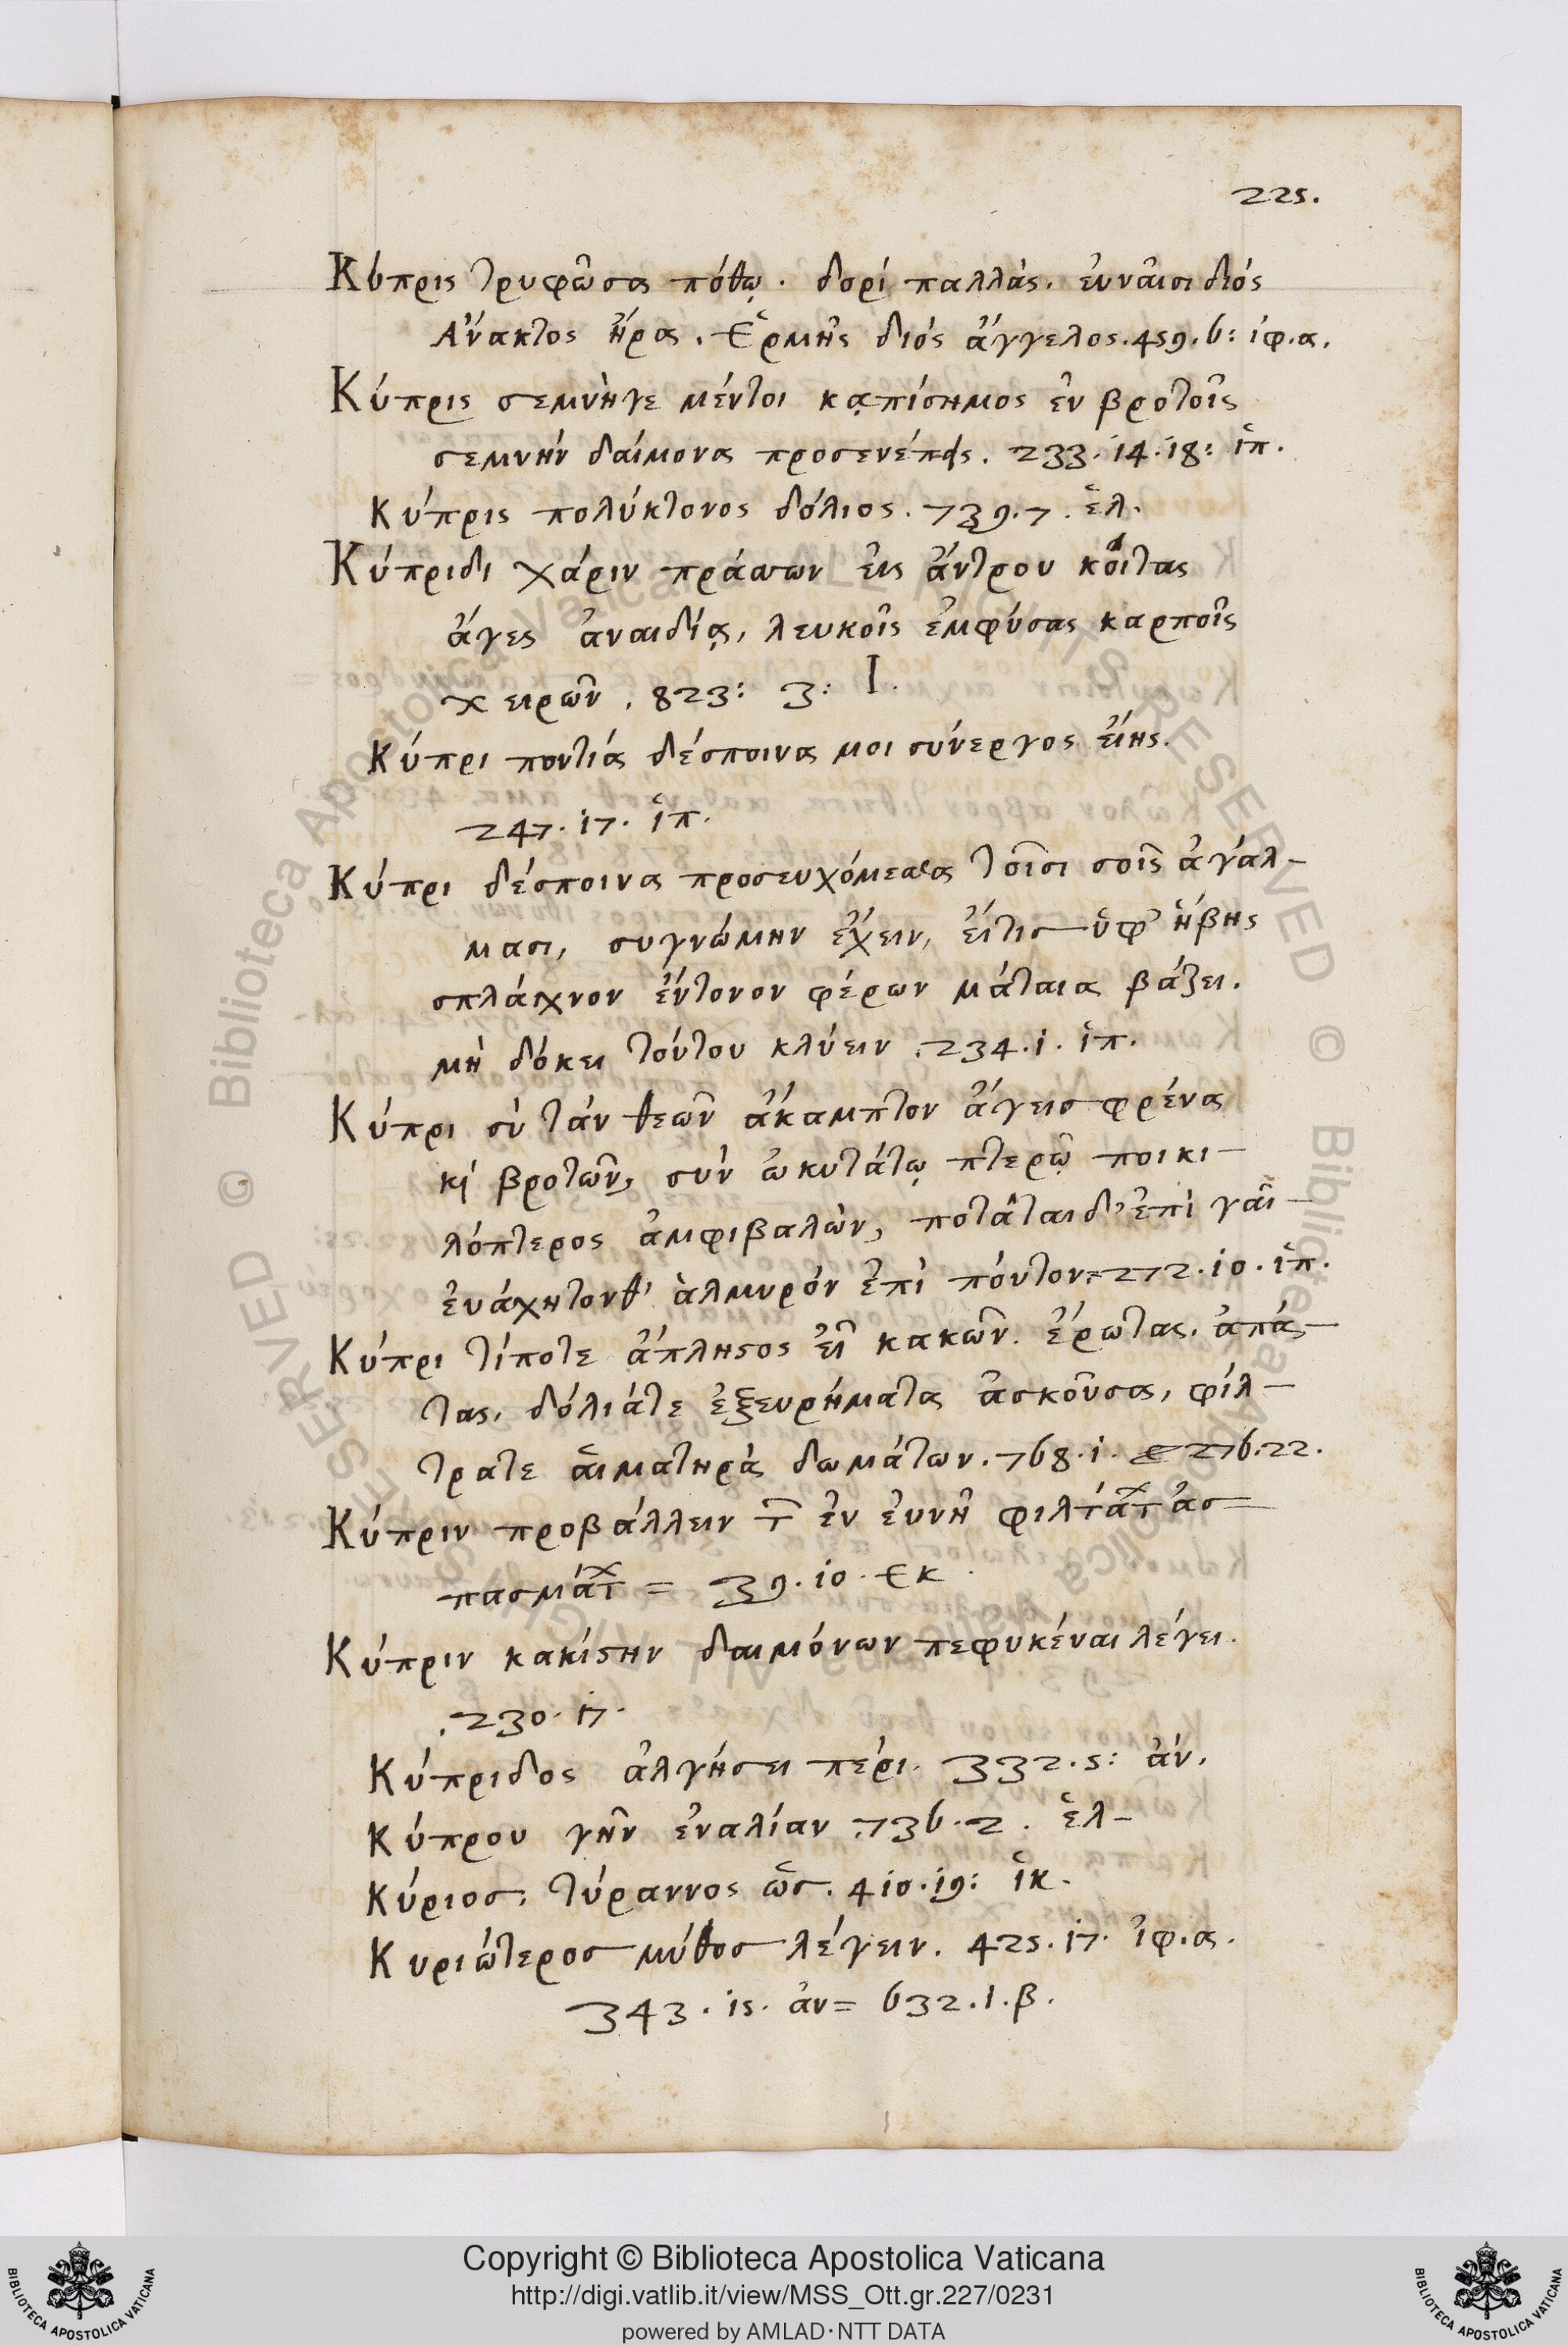 225.
Κύπρις τρυφῶσα πόθῳ. δορί παλλάς. εὐναῖσι διός
Ἄνακτος ἥρα. Ἑρμῆς διός ἄγγελος. 459. 6: ἰφ. α.
Κύπρις σεμνήγε μέντοι κᾳπίσημος ἐν βροτοῖς
σεμνήν δαίμονα προσενέπεις. 233. 14. 18: ἱπ.
Κύπρις πολύκτονος δόλιος. 739. 7. ἑλ.
Κύπριδι χάριν πράσσων εἰς ἄντρου κοίτας
ἄγες ἀναιδίᾳ, λευκοῖς ἐμφύσας καρποῖς
χειρῶν. 823: 3: Ι.
Κύπρι ποντιά δέσποινα μοι συνέργος εἴης.
247. 17. ἱπ.
Κύπρι δέσποινα προσευχόμεσθα τοῖσι σοῖς ἀγάλ-
μασι, συγνώμην ἔχειν, εἴτις ὑφ' ἥβης
σπλάχνον ἔντονον φέρων μάταια βάζει.
μὴ δόκει τούτου κλύειν. 234. 1. ἱπ.
Κύπρι σὺ τάν θεῶν ἄκαμπτον ἄγεις φρένα
κὶ βροτῶν, σὺν ὠκυτάτῳ πτερῷ ποικι-
λόπτερος ἀμφιβαλών, ποτᾶται δ' ἐπὶ γαῖ-
εὐάχητονθ' ἁλμυρόν ἐπὶ πόντον= 272. 10. ἱπ.
Κύπρι τίποτε ἄπληστος εἶ κακῶν. ἔρωτας. ἀπάς-
τας. δόλιάτε ἐξευρήματα ἀσκοῦσα, φίλ-
τρατε αἱματηρὰ δωμάτων. 768. 1. 276. 22.
Κύπριν προβάλλειν τ̃ ἐν εὐνῇ φιλτάτ ἀσ=
πασμάτ = 39. 10. Εκ.
Κύπριν κακίστην δαιμόνων πεφυκέναι λέγει.
230. 17.
Κύπριδος ἀλγήσει πέρι. 332. 5: ἀν.
Κύπρου γῆν ἐναλίαν. 736. 2. ἑλ-
Κύριος, τύραννος ὥς. 410. 19: ἱκ.
Κυριώτερος μύθος λέγειν. 425. 17. ἰφ. α.
343. 15. ἀν= 632. 1. β.
Copyright © Biblioteca Apostolica Vaticana
http://digi.vatlib.it/view/MSS_Ott.gr.227/0231
powered by AMLAD·NTT DATA